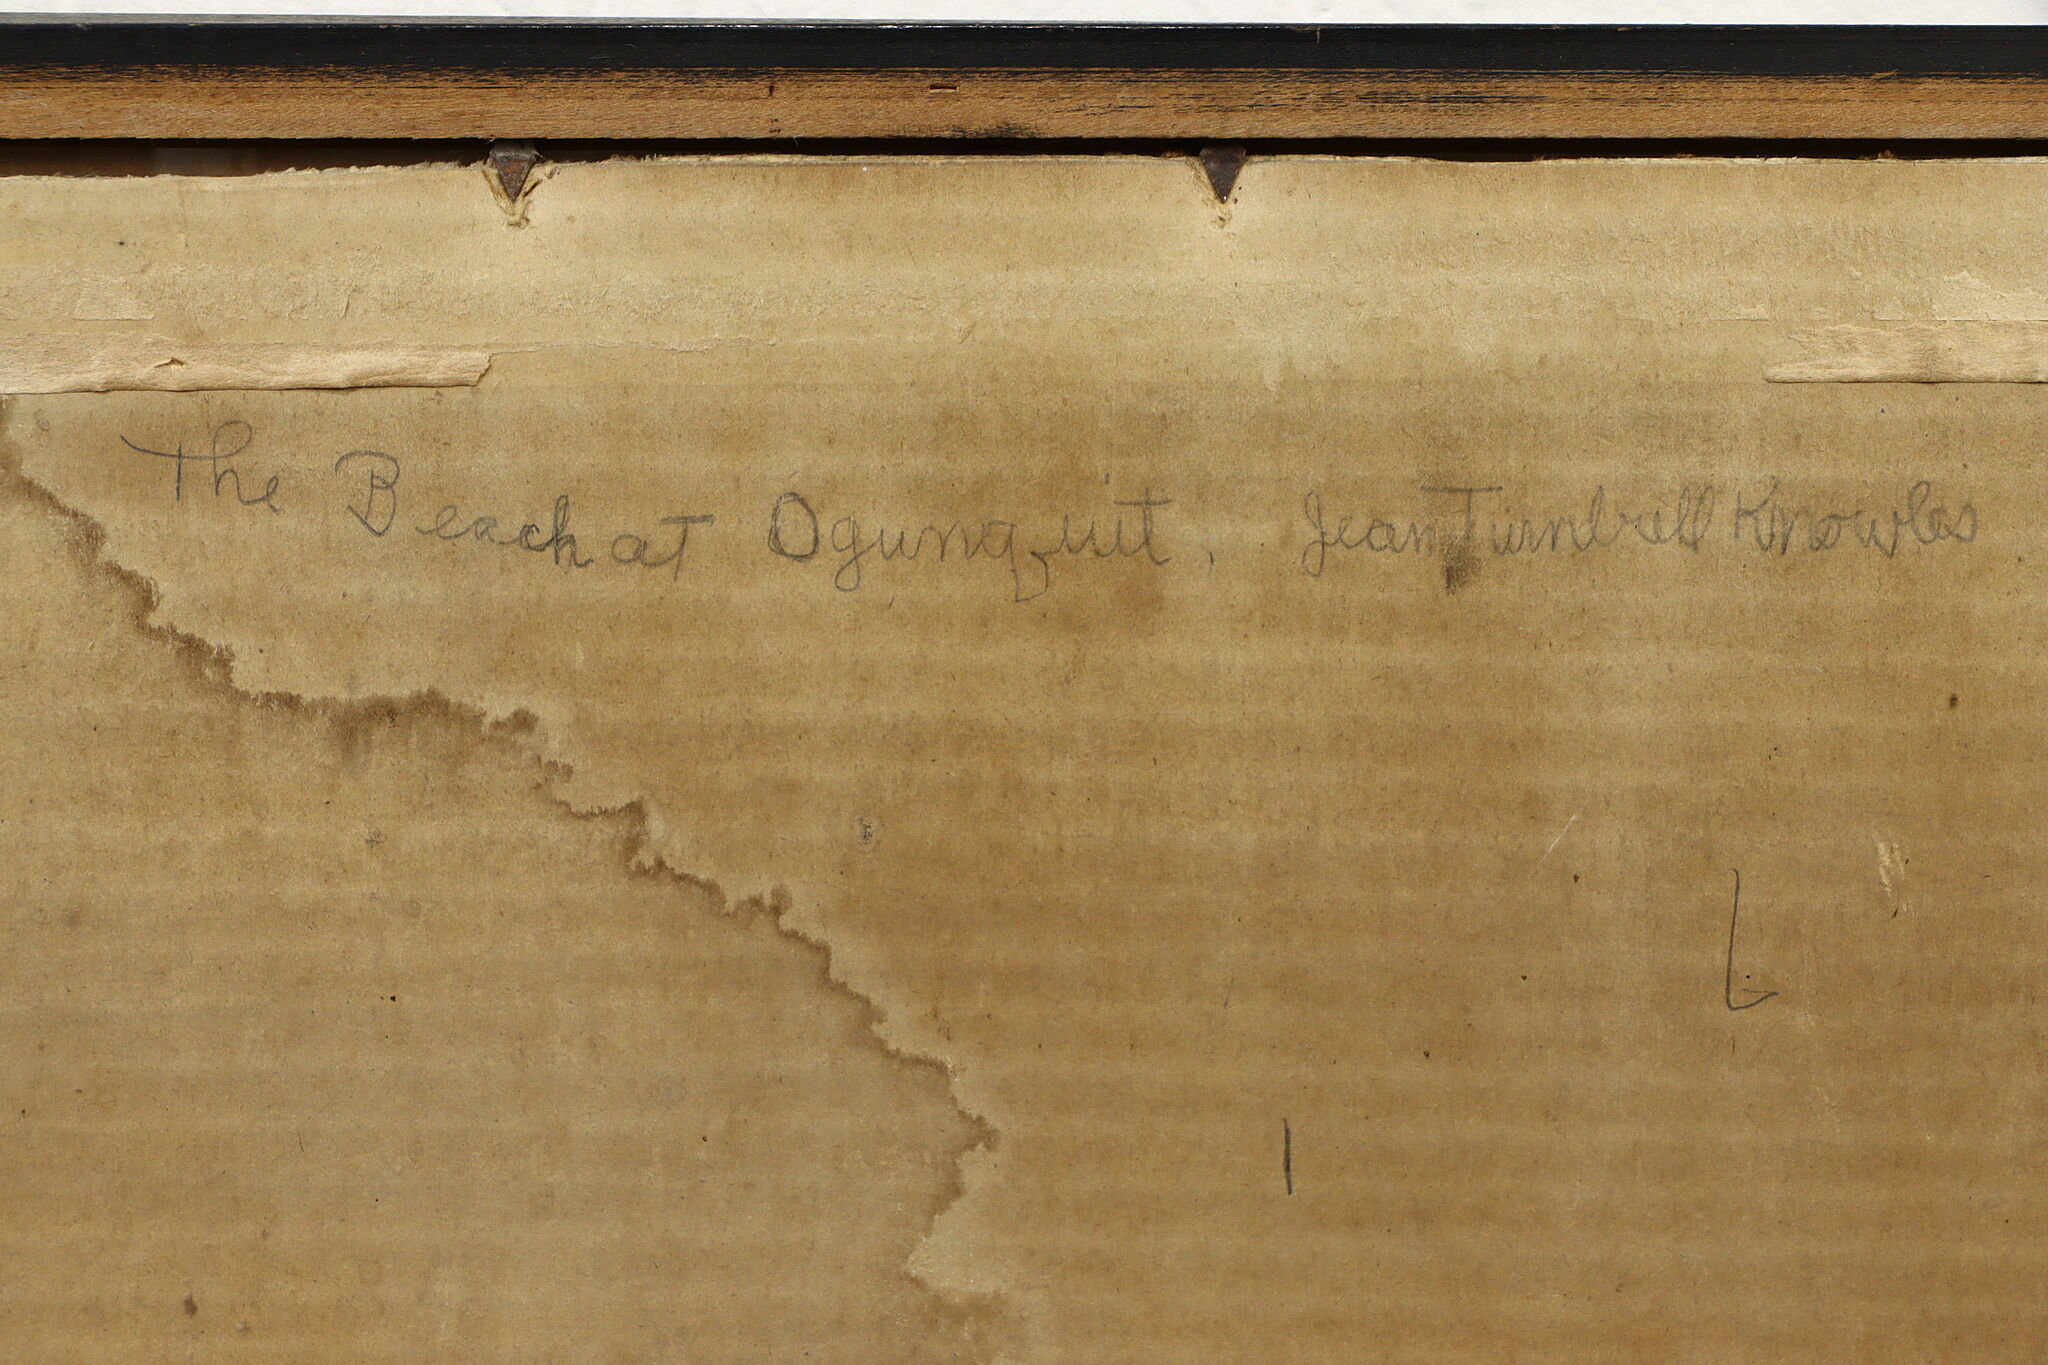 The Beach at Ogunquit, Jean Turnbull Knowles